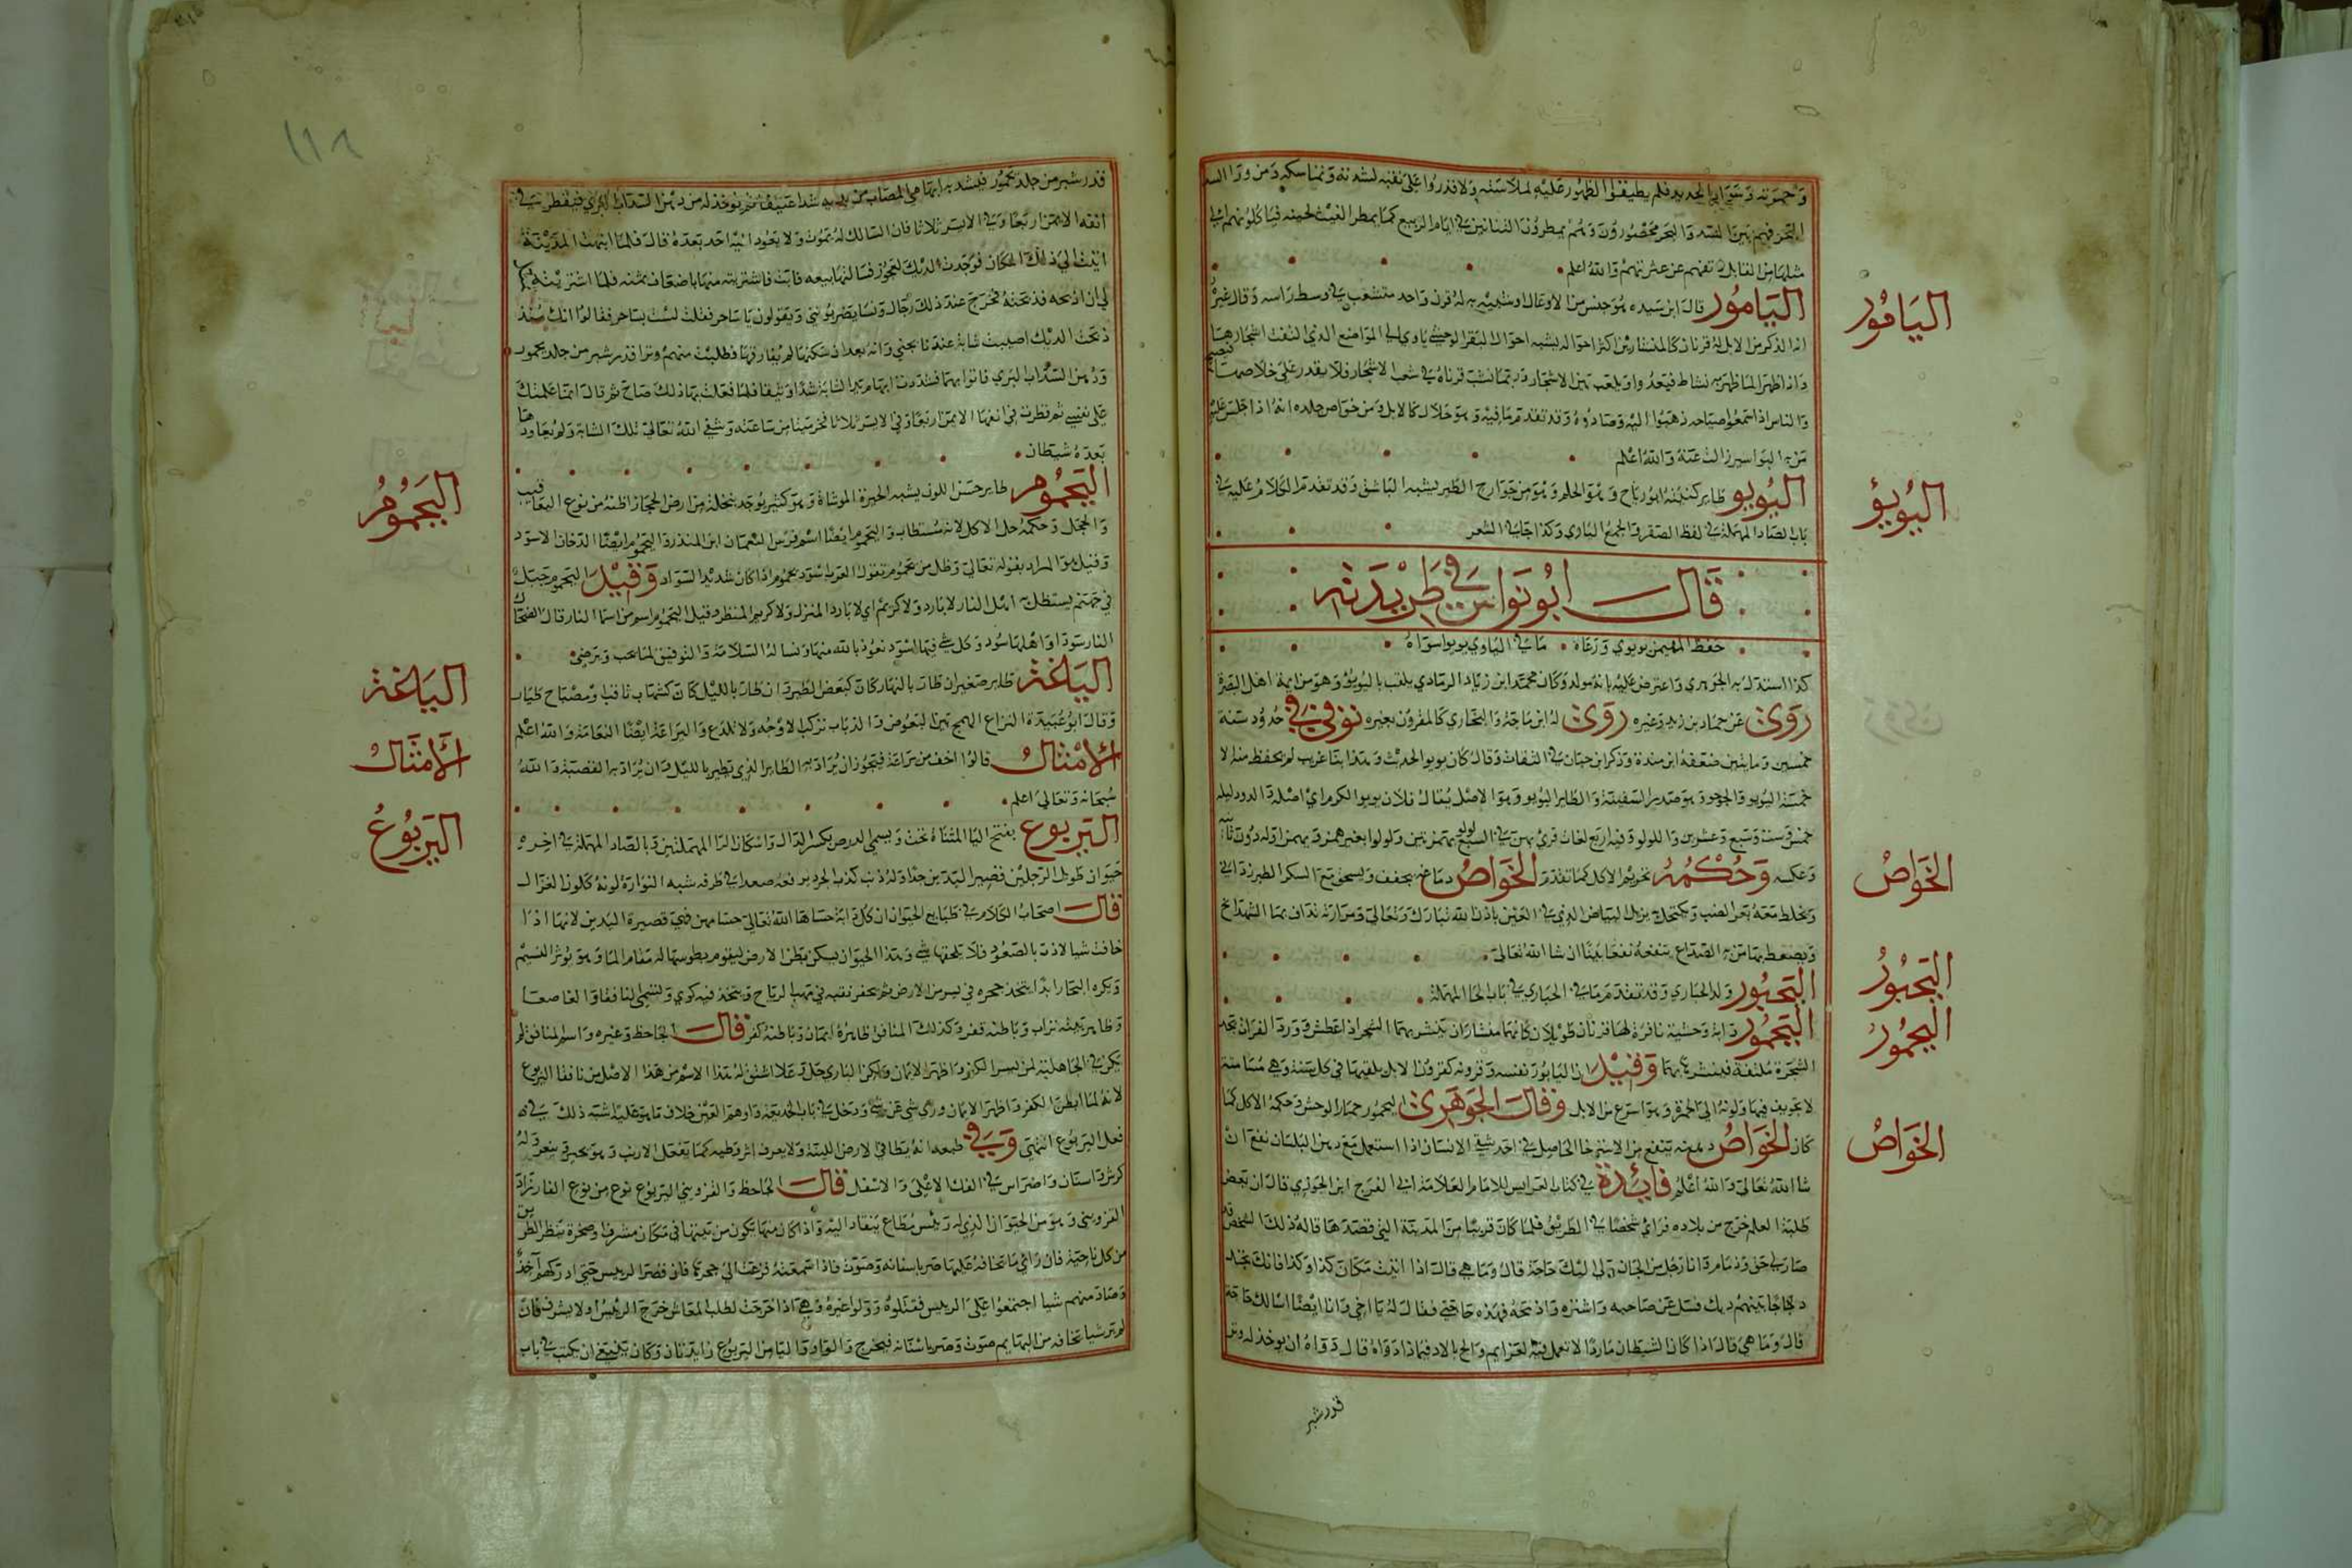 وحمرته وسواد الحديد فلم يطيقوا الظهور عليه لملاسته ولا قدروا على نقبه لشدته وتماسكه ومن ورا السد
البحر فهم بين السد والبحر محصورون وهم يمطرون التنانين في ايام الربيع كما يمطر الغيث لحينه فياكلونهم الى
مثلها من القابل تعمهم عن عشرتهم والله اعلم
اليامور قال ابن سيده هو جنس من الاوعال او شبيه به له قرن واحد متشعب في وسط راسه وقال غيره
انه الذكر من الايل له قرنان كالمنشارين اكثر احواله يشبه احوال البقر الوحشي ياوي الى المواضع الذي التفت اشجارها
واذا ظهر الما ظهر به نشاط فيعدوا ويلعب بين الاشجار وربما نشب قرناه في شعب الاشجار فلا يقدر على خلاصهما فيصيح
والناس اذا سمعوا صياحه ذهبوا اليه وصادوه وقد تقدم ما فيه وهو حلال كالايل ومن خواص جلده انه اذا جلس عليه
من به البواسير زالت عنه والله اعلم
اليويو طاير كنيته ابو رياح وهو الحلم وهو من جوارح الطير يشبه الباشق وقد تقدم الكلام عليه في
باب الصاد المهملة في لفظ الصقر والجمع الياي وكذا جا في الشعر
قال ابو نواس في طريدته
حفظ المهيمن يويوي ورعاه ما في اليايي يويو اسواه
كذا استدل به الجوهري واعترض عليه بانه مولد وكان محمد ابن زياد الزيادي يلقب باليويو وهو من ايمة اهل البصرة
روى عن حماد بن زيد وغيره روى له ابن ماجة والبخاري كالمقرون بغيره توفي في حدود سنة
خمسين ومايتين ضعفه ابن مندة وذكر ابن حبان في الثقات وقال كان يويو الحديث وهذا بنا غريب لم يحفظ منه الا
خمسة اليويو والجوجو وهو صدر السفينة والطاير البويو وهو الاصل يقال فلان بويو الكرم اي اصله والدودليله
خمس وست وسبع وعشرين واللولو وفيه اربع لغات قرئ بهن في السبع لولو بهمزتين ولولو بغير همز وبهمز اوله دون ثانيه
وعكسه وحكمه تحريم الاكل كما تقدم الخواص دماغه يجفف ويسحق مع السكر الطبرزد الي
ويخلط معه بعر الضب ويكتحل به يزيل البياض الذي في العين باذن الله تبارك وتعالى ومرارته تداف بما الشهدانج
ويصعط بها من به الصداع ينفعه نفعا بينا ان شا الله تعالى
اليحبور ولد الحباري وقد تقدم ما في الحباري في باب الحا المهملة
اليحمور دابة وحشية نافرة لها قرنان طويلان كانهما منشاران ينشر بهما الشجر اذا عطش وورد الفرات يجد
الشجرة ملتفة فينشرها بهما وقيل انه اليامور نفسه وقرونه كقرون الايل يلقيها في كل سنة وهي صامتة
لا تجويف فيها ولونه الى الحمرة وهو اسرع من الايل وقال الجوهري اليحمور حمار الوحش وحكمه الاكل كما
كان الخواص دهنه ينفع من الاسترخا الحاصل في احد شقي الانسان اذا استعمل مع دهن البلسان نفع ان
شا الله تعالى والله اعلم فائدة في كتاب العرايس للامام العلامة ابي الفرج ابن الجوزي قال ان بعض
طلبة العلم خرج من بلاده فراى شخصا في الطريق فلما كان قريبا من المدينة التي قصدها قال له ذلك الشخص قد
صار لي حق وذمام وانا رجل من الجان ولي اليك حاجة قال وما هي قال اذا اتيت مكان كذا وكذا فانك تجد
دجاجا بينهم ديك فسل عن صاحبه واشتره واذبحه فهذه حاجتي فقال له يا اخي وانا ايضا اسالك حاجة
قال وما هي قال اذا كان الشيطان ماردا لا تعمل فيه العزايم والح بالاد فما ذا دواه قال دواه ان يوخذ له وتر
قدر شبر
اليامور
اليويؤ
الخواص
اليحبور
اليحمور
الخواص
قدر شبر من جلد يحمور فيشد به ابهامي المصاب من يديه شدا عنيفا ثم يوخذ له من دهن السداب البري فيقطر به في
انفه الايمن اربعا وفي الايسر ثلاثا فان السالك له يموت ولا يعود اليه احد بعده قال فلما اتيت المدينة
اتيت الى ذلك المكان فوجدت الديك لعجوز فسالتها بيعه فابت فاشتريته منها باضعاف ثمنه فلما اشتريته
لي ان اذبحه فذبحته فخرج عند ذلك رجال ونسا يضربونني ويقولون يا ساحر فقلت لست بساحر فقالوا انك منذ
ذبحت الديك اصيبت شابة عندنا بجني وانه بعد ان سكنها لم يفارقها فطلبت منهم وترا قدر شبر من جلد يحمور
ودهن السداب البري فاتوا بهما فشددت ابهام يد الشابة شدا وثيقا فلما فعلت بها ذلك صاح ثم قال انما علمتك
على نفسي ثم قطرت في انفها الايمن اربعا وفي الايسر ثلاثا فخر ميتا من ساعته وشفى الله تعالى تلك الشابة ولم يعاودها
بعده شيطان
اليحموم طاير حسن اللون يشبه الحبرة الموشاة وهو كثير يوجد بنخلة من ارض الحجاز اظنه من نوع اليعاقيب
والحجل وحكمه حل الاكل لانه مستطاب واليحموم ايضا اسم فرس النعمان ابن المنذر واليحموم ايضا الدخان الاسود
وقيل هو المراد بقوله تعالى وظل من يحموم تقول العرب اسود يحموم اذا كان شديد السواد وقيل اليحموم جبل
في جهنم يستظل به اهل النار لا بارد ولا كريم اي لا بارد المنزل ولا كريم المنظر وقيل اليحموم اسم من اسما النار قال الضحاك
النار سودا واهلها سود وكل شي فيها اسود نعوذ بالله منها ونساله السلامة والتوفيق لما يحب ويرضى
اليراعة طاير صغير ان طار بالنهار كان كبعض الطير وان طار بالليل كان كشهاب ثاقب او مصباح طيار
وقال ابو عبيدة اليراع الهمج بين البعوض والذباب تركب الاوجه ولا تلدغ واليراعة ايضا النعامة والله اعلم
الامثال قالوا اخف من يراعة فيجوز ان يراد به الطاير الذي يطير بالليل وان يراد به القصبة والله
سبحانه وتعالى اعلم
اليربوع بفتح اليا المثناة تحت ويسمى الدرص بكسر الدال واسكان الرا المهملتين وبالصاد المهملة في اخره
حيوان طويل الرجلين قصير اليدين جدا وله ذنب كذنب الجرد يرفعه صعدا في طرفه شبه النوارة لونه كلون الغزال
قال اصحاب الكلام في طبايع الحيوان ان كل دابة حشاها الله تعالى خبثا فهي قصيرة اليدين لانها اذا
خافت شيا لاذت بالصعود فلا يلحقها شي وهذا الحيوان يسكن بطن الارض ليقوم رطوبتها له مقام الما وهو يوثر النسيم
ويكره البحار ابدا يتخذ جحره في نشز من الارض ثم يحفر نقبه في مهب الرياح ويتخذ فيه كوى وتسمى النافقا والقاصعا
وظاهر بيته تراب وباطنه قفر وكذلك المنافق ظاهره ايمان وباطنه كفر قال الجاحظ وغيره واسم المنافق لم
يكن في الجاهلية لمن يسر الكفر واظهر الايمان ولكن الباري جل وعلا اشتق له هذا الاسم من هذا الاصل من نافقا اليربوع
لانه لما ابطن الكفر واظهر الايمان وورى شي عن شي ودخل في باب الخديعة واوهم الغير خلاف ما هو عليه اشبه ذلك في
فعل اليربوع انتهى وفي طبعه انه يطا في الارض اللينة ولا يعرف اثر وطيه كما يفعل الارنب وهو يجتر ويبعر وله
كرش واسنان واضراس في الفك الاعلى والاسفل قال الجاحظ والقزويني اليربوع نوع من نوع الفار زاد
القزويني وهو من الحيوان الذي له رييس مطاع ينقاد اليه واذا كان منها يكون من بينها في مكان مشرف او صخرة ينظر الطرين
من كل ناحية فان راى ما تخافه عليها صر باسنانه وصوت فاذا سمعته فزعت الى جحرتها فان قصر الرييس حتى ادركهم احد
وصاد منهم شيا اجتمعوا على الرييس فقتلوه وولوا غيره وهي اذا خرجت لطلب المعاش خرج الرييس اولا يشرف فان
لم ير شيا تخافه من البهايم صوت وصر باسنانه فيخرج والواو واليا من اليربوع زايدتان وكان ينبغي ان يكتب في باب
اليحموم
اليراعة
الامثال
اليربوع